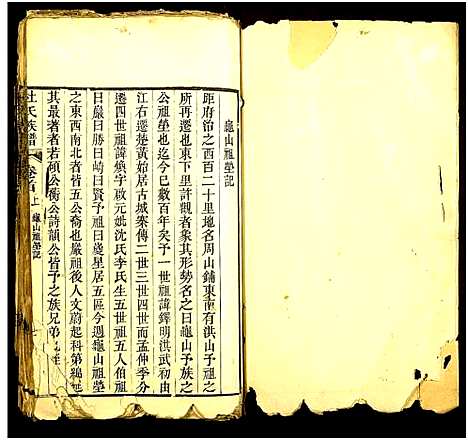 龜山祖塋記
距府治之西百二十里地名周山鋪東南有洪山予祖之
所再遷也東下里許觀者象其形勢名之曰龜山予族之
公祖塋也迄今已數百年矣予一世祖諱鐸明洪武初由
江右遷楚黃始居古城寨傳二世三世四世而孟仲季分
遷四世祖諱縝字啟元妣沈氏李氏生五世祖五人伯祖
曰巖曰勝曰崎曰賢予祖曰晟星居五區今週龜山祖塋
之東西南北者皆五公裔也嚴祖後人文蔚起科第綿延
其最著者若碩公衡公詩韻公皆予之族兄弟
杜氏族譜 卷首上 龜山祖塋記